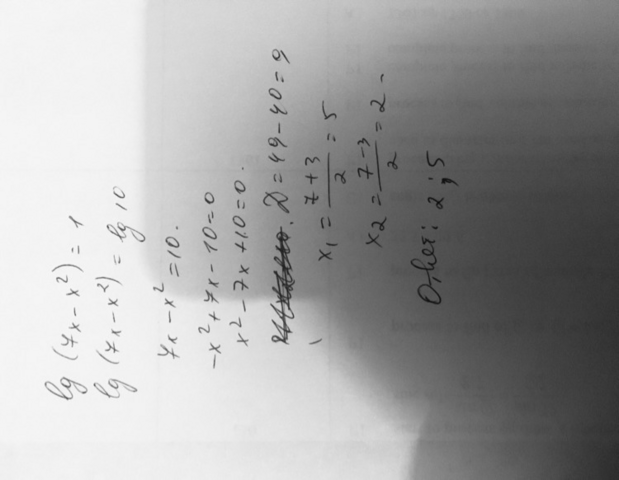 lg (7x-x²) = 1
lg (7x-x²) = lg 10
7x-x²=10.
-x²+7x-10=0
x²-7x+10=0.
D=49-40=9
x₁ = (7+3)/2 = 5
x₂ = (7-3)/2 = 2.
Ответ: 2; 5